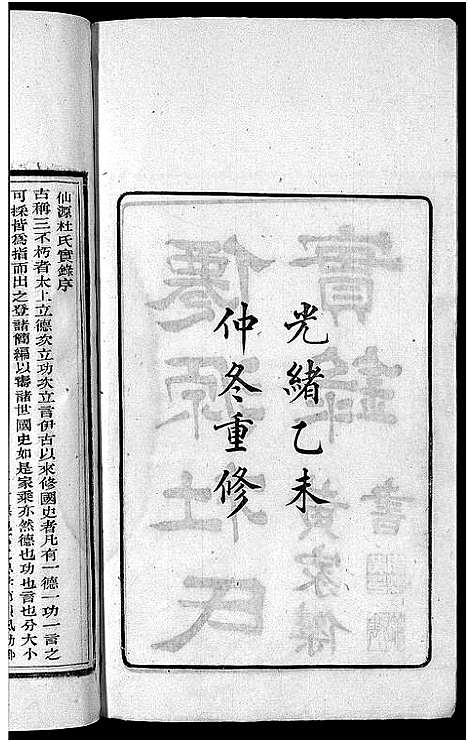 光緒乙未
仲冬重修
仙源杜氏實錄序
古稱三不朽者太上立德次立功次立言伊古以來修國史者凡有一德一功一言之
可採皆為指而出之登諸簡編以審諸世國史如是家乘亦然德也功也言也分大小
實錄
僊源杜氏
黃家傑書